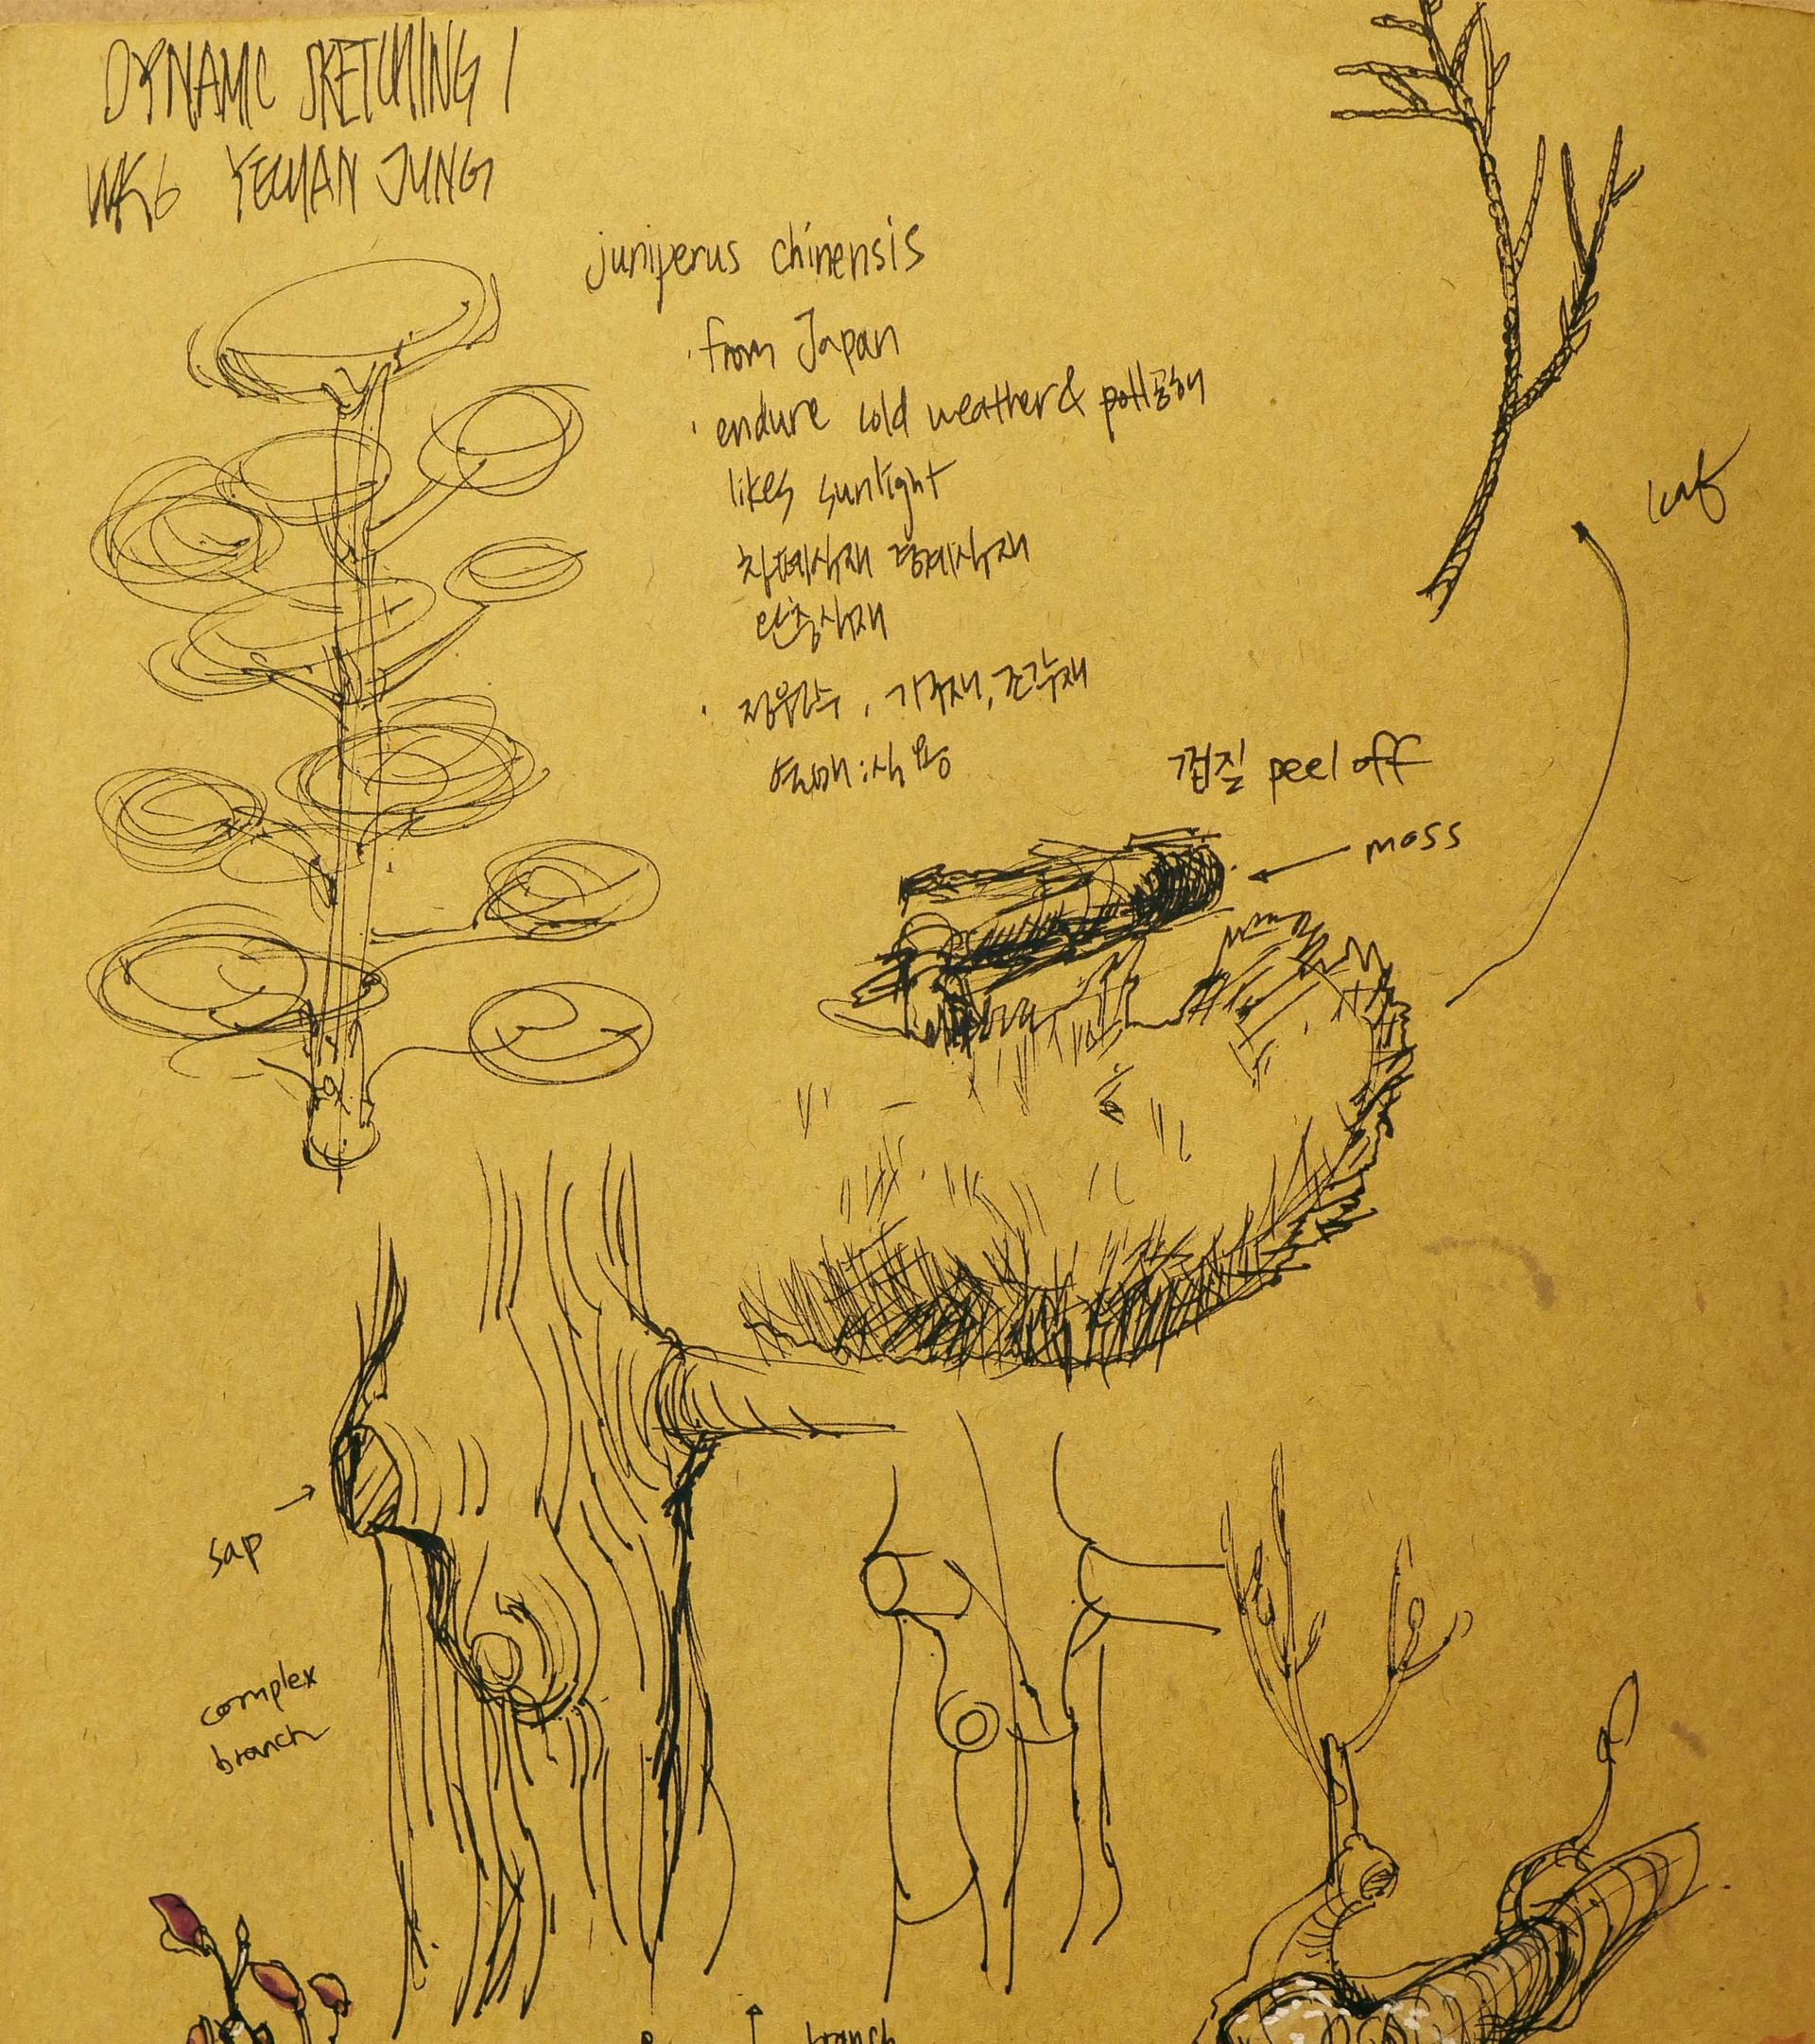 DYNAMIC SKETCHING 1
WK6 YECHAN JUNG
juniperus chinensis
· from Japan
· endure cold weather & 공해
likes sunlight
· 정원수, 가구재, 조각재
열매:식용
껍질 peel off
moss
leaf
sap
complex
branch
branch